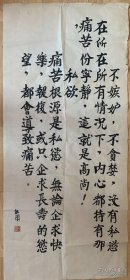 不嫉妒，不貪婪，没有私慾
在所在所有情况下，内心都待有那
痛苦份寧靜，這就是高尚！
私欲，
痛苦根源是私慾，無論企求快
樂，報復，或只企求長壽的慾
望，都會導致痛苦